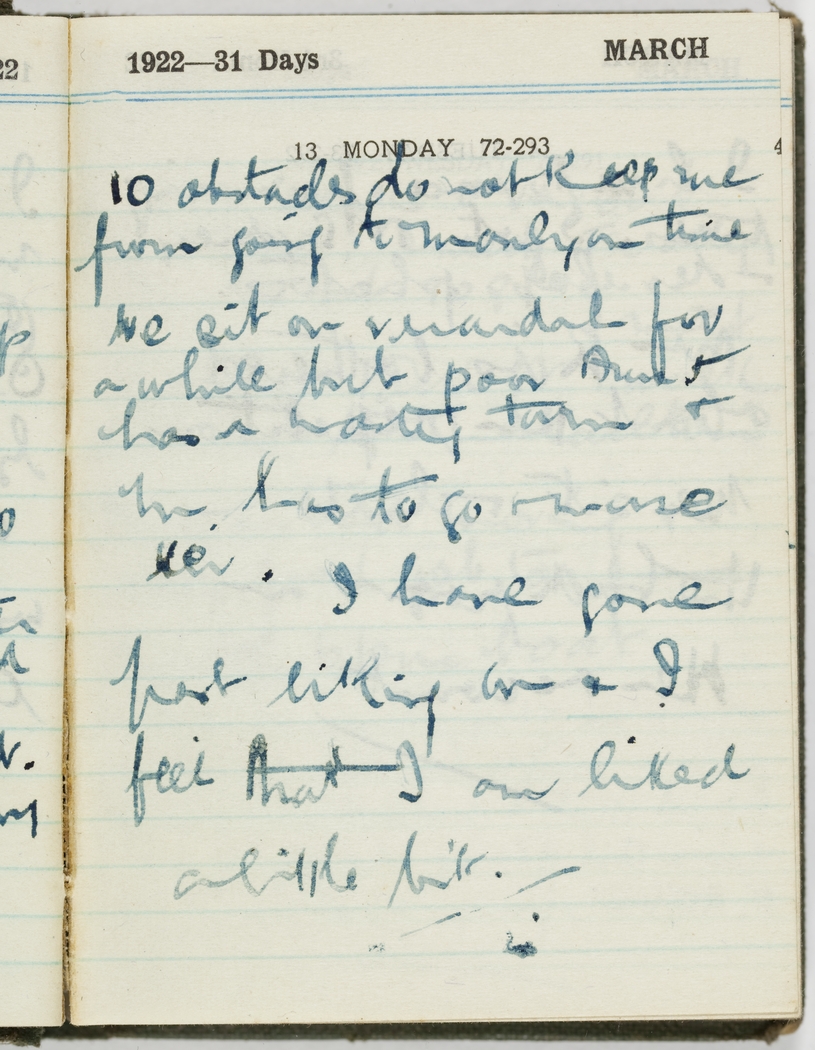 22
1922—31 Days MARCH
13 MONDAY 72-293
4
10 obstacles do not keep me
from going to Manly on time
We sit on verandah for
a while but poor Aunt
has a nasty turn &
has to go & nurse
her. I have gone
past liking &  I
feel that I am liked
a little bit.